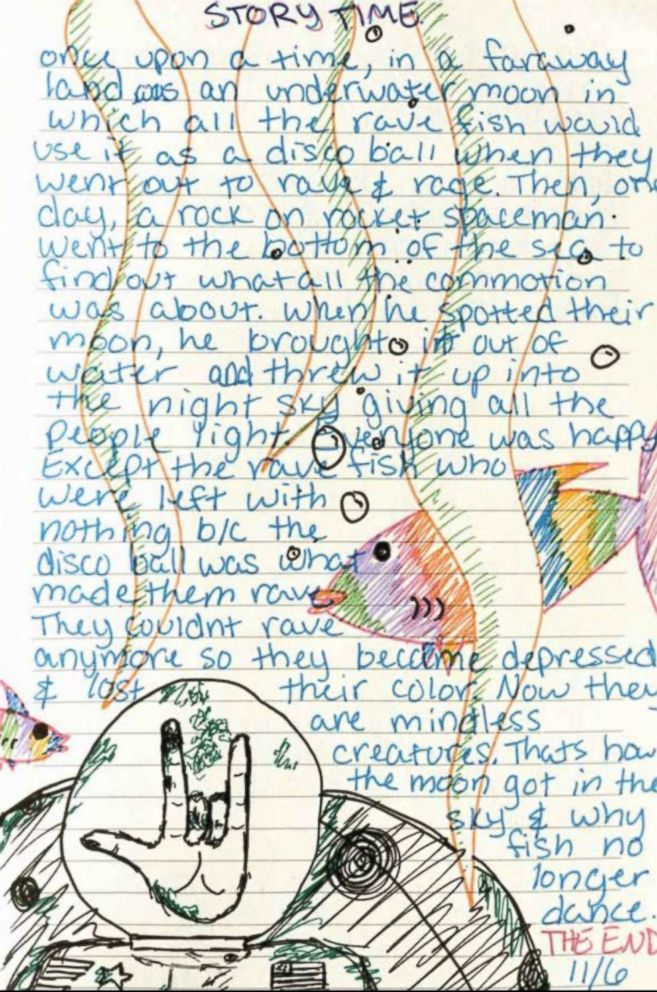 STORY TIME
once upon a time, in a faraway
land was an underwater moon in
which all the rave fish would
use it as a disco ball when they
went out to rave & rage. Then, one
day, a rock on rocket spaceman
went to the bottom of the sea to
find out what all the commotion
was about. When he spotted their
moon, he brought it out of
water and threw it up into
the night sky giving all the
people light. Everyone was happy
Except the rave fish who
were left with
nothing b/c the
disco ball was what
made them rave
They couldnt rave
anymore so they became depressed
& lost their color. Now they
are mindless
creatures. Thats how
the moon got in the
sky & why
fish no
longer
dance.
THE END
11/6